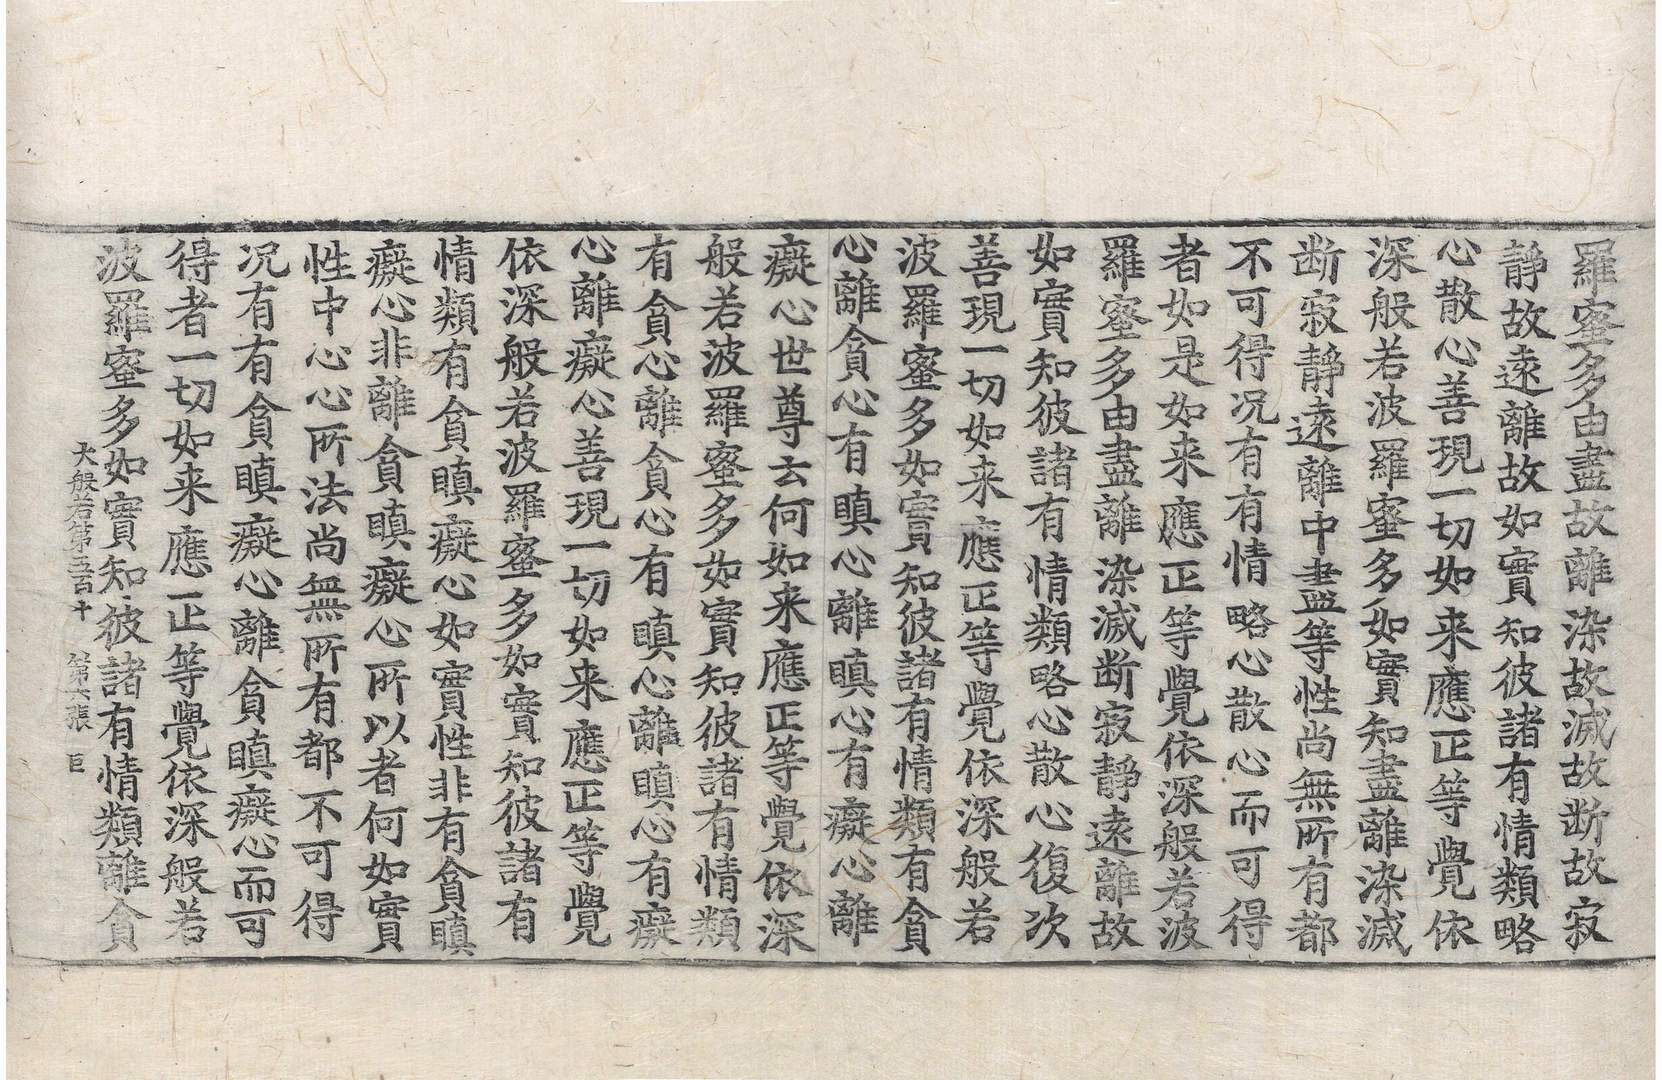 羅蜜多由盡故離染故滅故断故寂
静故遠離故如實知彼諸有情類略
心散心善現一切如来應正等覺依
深般若波羅蜜多如實知盡離染滅
断寂静遠離中盡等性尚無所有都
不可得况有有情略心散心而可得
者如是如来應正等覺依深般若波
羅蜜多由盡離染滅断寂静遠離故
如實知彼諸有情類略心散心復次
善現一切如来應正等覺依深般若
波羅蜜多如實知彼諸有情類有貪
心離貪心有瞋心離瞋心有癡心離
癡心世尊云何如来應正等覺依深
般若波羅蜜多如實知彼諸有情類
有貪心離貪心有瞋心離瞋心有癡
心離癡心善現一切如来應正等覺
依深般若波羅蜜多如實知彼諸有
情類有貪瞋癡心如實性非有貪瞋
癡心非離貪瞋癡心所以者何如實
性中心心所法尚無所有都不可得
况有有貪瞋癡心離貪瞋癡心而可
得者一切如来應正等覺依深般若
波羅蜜多如實知彼諸有情類離貪
大般若第五百十 第六張 巨